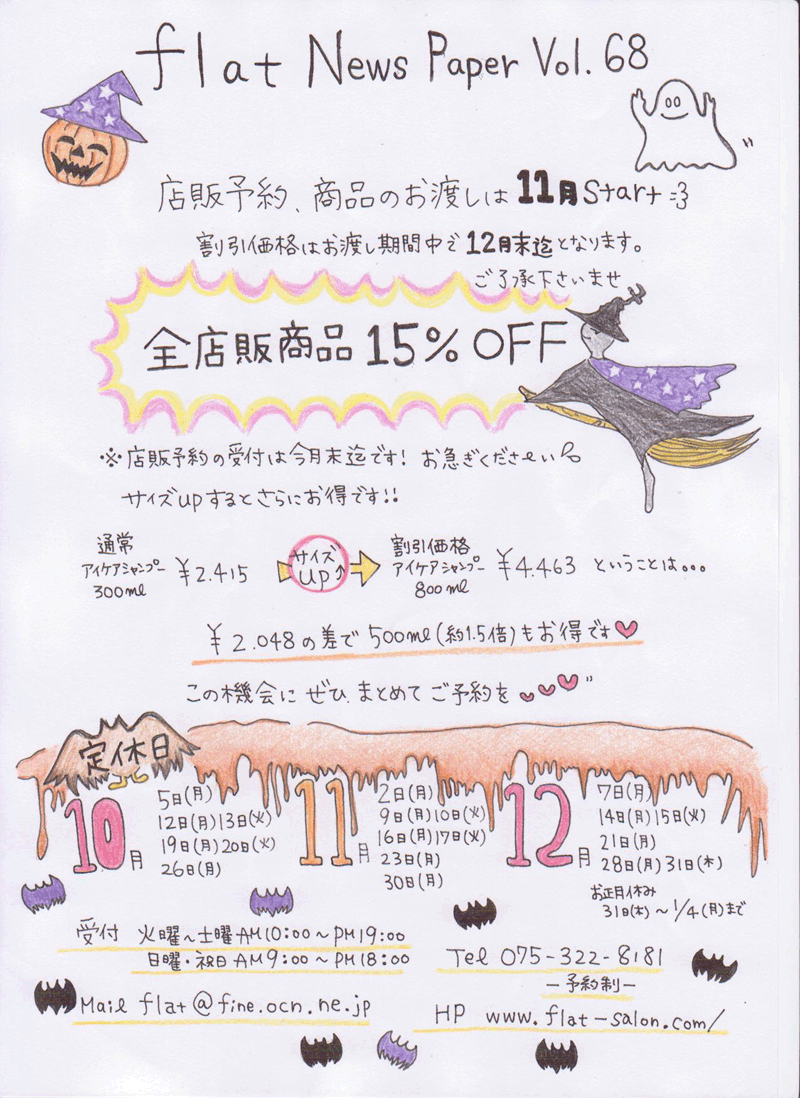 flat News Paper Vol. 68
店販予約、商品のお渡しは11月Start
割引価格はお渡し期間中で12月末迄となります。
ご了承下さいませ
全店販商品15% OFF
※店販予約の受付は今月末迄です！お急ぎください
サイズupするとさらにお得です!!
通常
アイケアシャンプー
300ml
¥2.415
サイズ
UP↑
割引価格
アイケアシャンプー
800ml
¥4.463 ということは...
¥2.048の差で500ml(約1.5倍)もお得です
この機会にぜひまとめてご予約を
定休日
10月
5日(月)
12日(月)13日(火)
19日(月)20日(火)
26日(月)
11月
2日(月)
9日(月)10日(火)
16日(月)17日(火)
23日(月)
30日(月)
12月
7日(月)
14日(月)15日(火)
21日(月)
28日(月)31日(木)
お正月休み
31日(木)～1/4(月)まで
受付 火曜～土曜AM10:00～PM19:00
日曜・祝日AM9:00～PM18:00
Tel 075-322-8181
－予約制－
Mail flat@fine.ocn.ne.jp
HP www.flat-salon.com/